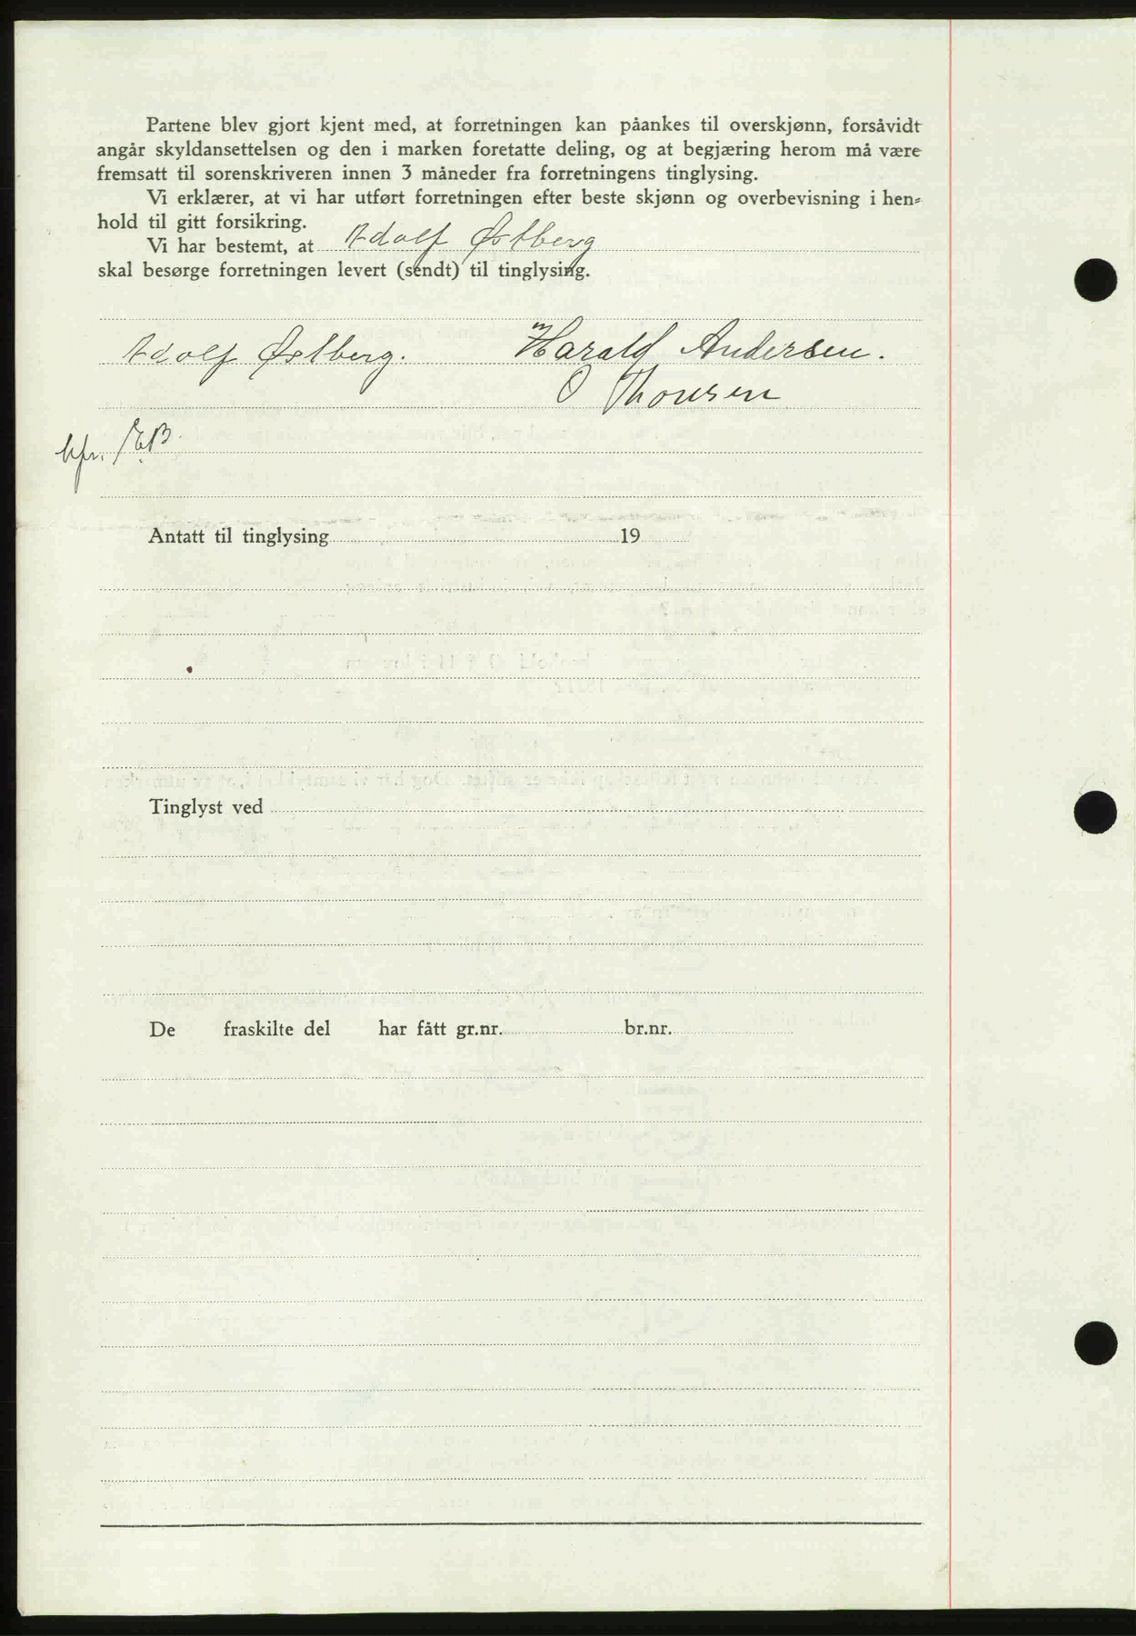 Partene blev gjort kjent med, at forretningen kan påankes til overskjønn, forsåvidt
angår skyldansettelsen og den i marken foretatte deling, og at begjæring herom må være
fremsatt til sorenskriveren innen 3 måneder fra forretningens tinglysing.
Vi erklærer, at vi har utført forretningen efter beste skjønn og overbevisning i hen-
hold til gitt forsikring.
Vi har bestemt, at Adolf Østberg
skal besørge forretningen levert (sendt) til tinglysing.
Adolf Østberg. Harald Andersen.
O Thorsen
kfr. /EB.
Antatt til tinglysing 19
Tinglyst ved
De fraskilte del har fått gr.nr. br.nr.